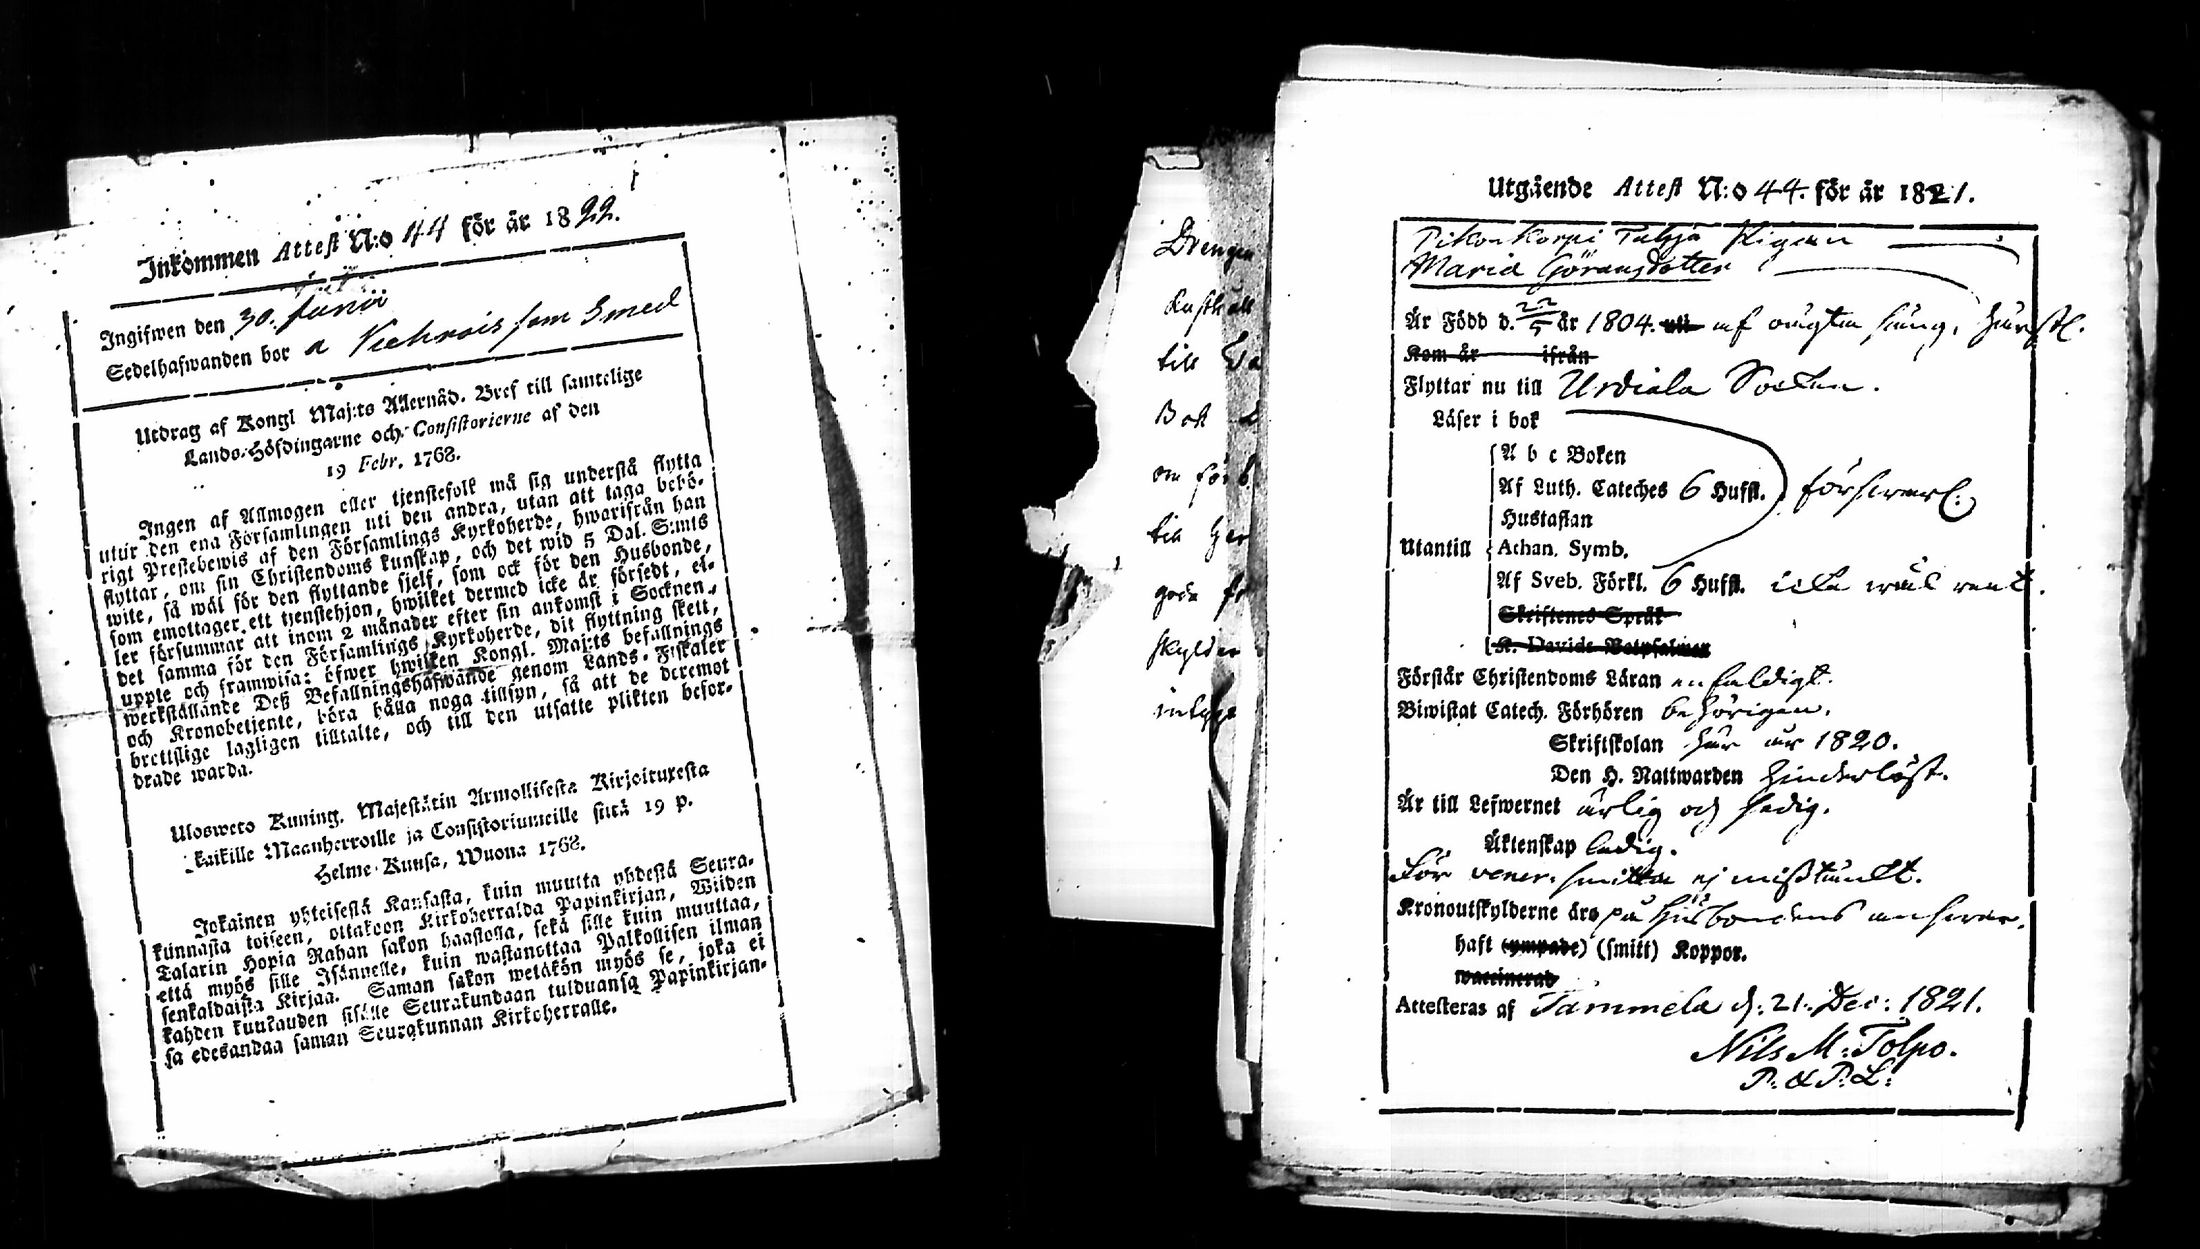 Inkommen Attest N:o 44 för år 1822.
Ingifwen den 30. Junii
Sedelhafwanden bor a som Smed
Utdrag af Kongl Maj:ts Allernåd. Bref till samtelige
Lands-Höfdingarne och Consistorierne af den
19 Febr. 1768.
Ingen af Allmogen eller tjenstefolk må sig understå flytta
utur den ena Församlingen uti den andra, utan att taga behö-
rigt Prestebewis af den Församlings Kyrkoherde, hwarifrån han
flyttar, om sin Christendoms kunskap, och det wid 5 Dal. S:mts
wite, så wäl för den flyttande sjelf, som ock för den Husbonde,
som emottager ett tjenstehjon, hwilket dermed icke är försedt, el-
ler försummar att inom 2 månader efter sin ankomst i Socknen,
det samma för den Församlings Kyrkoherde, dit flyttning skett,
uppte och framwisa; öfwer hwilken Kongl. Maj:ts befallnings
werkställande Deß Befallningshafwande genom Lands-Fiskaler
och Kronobetjente, böra hålla noga tillsyn, så att de deremot
brottslige lagligen tilltalte, och till den utsatte plikten befor-
drade warda.
Ulosweto Kuning. Majestätin Armollisesta Kirjoituxesta
kaikille Maanherroille ja Consistoriumeille siitä 19 p.
Helme-Kunsa, Wuona 1768.
Jokainen yhteisestä Kansasta, kuin muutta yhdestä Seura-
kunnasta toiseen, ottakoon Kirkoherralda Papinkirjan, Wiiden
Talarin Hopia Rahan sakon haastolla, sekä sille kuin muuttaa,
että myös sille Isännelle, kuin wastanottaa Palkollisen ilman
senkaldaista Kirjaa. Saman sakon wetäkön myös se, joka ei
kahden kuukauden sisälle Seurakundaan tulduansa Papinkirjan-
sa edesandaa saman Seurakunnan Kirkoherralle.
Drengen
till
Bok
om
till
goda
skylder
Utgående Attest N:o 44. för år 1821.
Pigan
Maria Göransdotter
Är Född d. 22/5 år 1804. uti af
Kom år ifrån
Flyttar nu till Urdiala Socken.
Läser i bok
A b c Boken
Af Luth. Cateches 6 Hufst. försvarl.
Hustaflan
Utantill Athan. Symb.
Af Sveb. Förkl. 6 Hufst. icke wäl rent.
Skriftenes Språk
K. Davids Botpsalmer
Förstår Christendoms Läran enfaldigt.
Biwistat Catech. Förhören behörigen.
Skriftskolan här år 1820.
Den H. Nattwarden hinderlöst.
Är till Lefwernet ärlig och sedig.
Äktenskap ledig.
För vener. smitta ej mißtänkt.
Kronoutskylderne äro på husbondens answar.
haft (ympade) (smitt) Koppor.
waccinerad
Attesteras af Tammela d. 21. Dec: 1821.
Nils M. Tolpo.
P. & P. L: